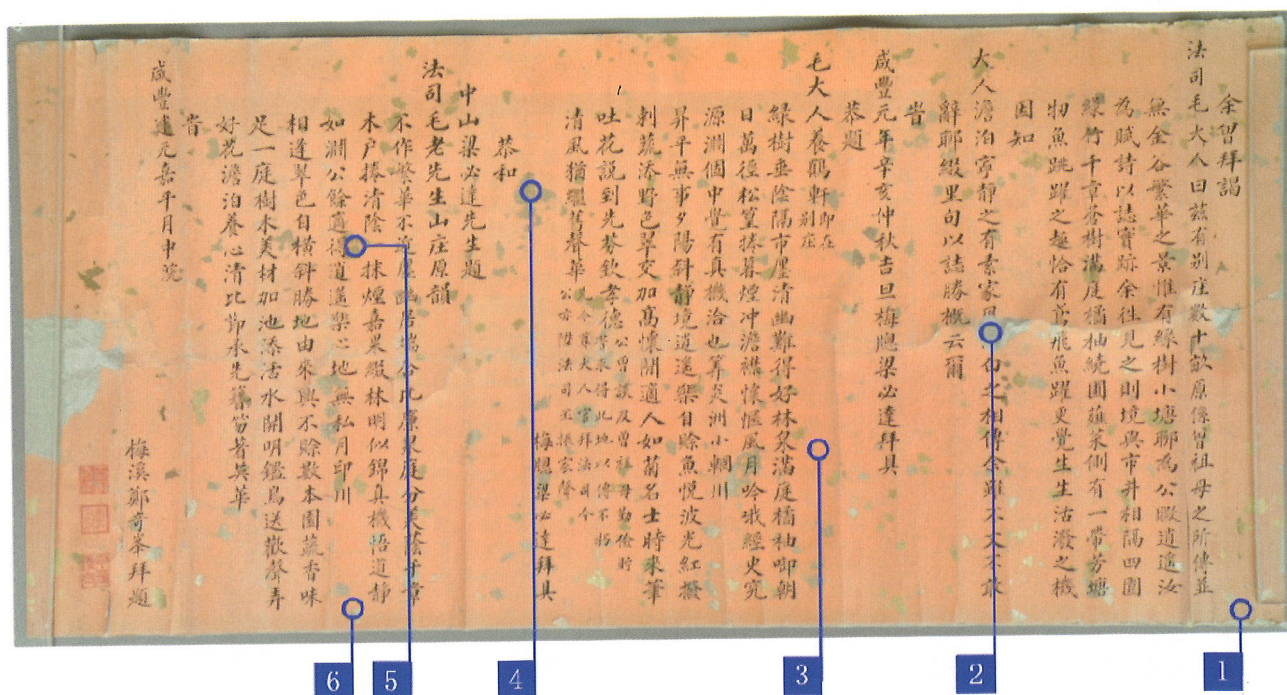 余曾拜謁
法司毛大人曰茲有別庄數十畝原係曾祖母之所傳並
無金谷繁華之景惟有緑樹小塘聊為公暇逍遙汝
為賦詩以誌實跡余往見之則境與市井相隔四園
緑竹千章杏樹滿庭橘柚繞圃蔬菜側有一帶芳塘
物魚跳躍之趣恰有鳶飛魚躍更覺生生活潑之機
因知
大人澹泊寧靜之有素家 之相傳余雖不文不敢
辭耶綴里句以誌勝概云爾
旹
咸豐元年辛亥仲秋吉旦梅牕梁必達拜具
恭題
毛大人養鶴軒即在別庄
緑樹垂陰隔市廛清幽難得好林泉滿庭橘柚啣朝
日萬徑松篁捲暮煙冲澹襟懷惬風月吟哦經史究
源淵個中覺有真機洽也算炎洲小輞川
昇平無事夕陽斜靜境逍遙樂自賒魚悦波光紅撥
剌蔬添野色翠交加高懷閒適人如菊名士時來筆
吐花説到先春欽孝德公曾談及曾祖母勤儉貯
清風猶繼舊聲華
梅牕梁必達拜具
恭和
中山梁必達先生題
法司毛老先生山庄原韻
不作繁華不逆廛幽居端合比原泉庭分美蔭千章
木戶捧清陰一抹煙嘉果綴林明似錦真機悟道靜
如淵公餘適得逍遙樂之地無私月印川
相逢翠色自横斜勝地由來興不賒數本園蔬香味
足一庭樹木美材加池添活水開明鑑鳥送歡聲弄
好花澹泊養心清比節承先簪笏著英華
旹
咸豐 元嘉平月中浣
梅溪鄭奇峯拜題
1
2
3
4
5
6